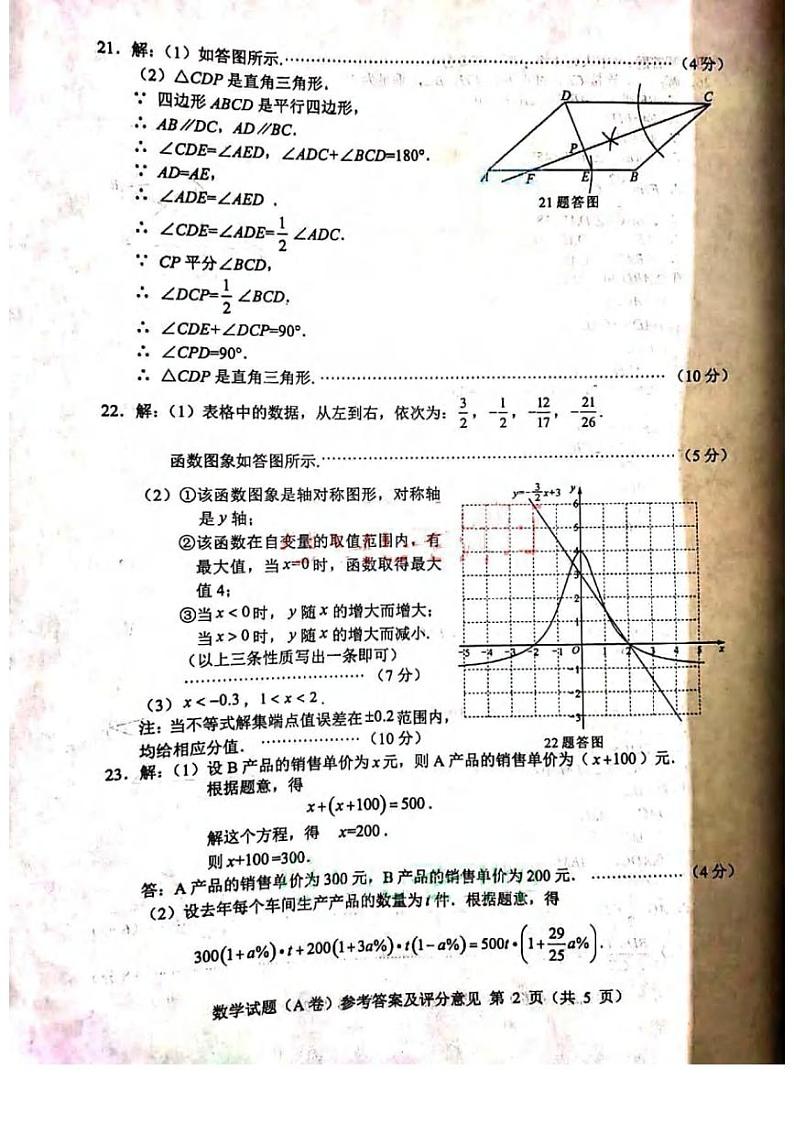 21. 解：(1) 如答图所示.……………………………………(4分)
(2) △CDP 是直角三角形.
∵ 四边形 ABCD 是平行四边形,
∴ AB∥DC, AD∥BC.
∴ ∠CDE=∠AED, ∠ADC+∠BCD=180°.
∵ AD=AE,
∴ ∠ADE=∠AED .
∴ ∠CDE=∠ADE=1/2 ∠ADC.
∵ CP 平分∠BCD,
∴ ∠DCP=1/2 ∠BCD.
∴ ∠CDE+∠DCP=90°.
∴ ∠CPD=90°.
∴ △CDP 是直角三角形.……………………………………(10分)
D C
P
A F E B
21 题答图
22. 解：(1) 表格中的数据，从左到右，依次为：3/2, -1/2, -12/17, -21/26.
函数图象如答图所示.……………………………………(5分)
(2) ①该函数图象是轴对称图形，对称轴
是 y 轴;
②该函数在自变量的取值范围内，有
最大值，当 x=0 时，函数取得最大
值 4;
③当 x < 0 时， y 随 x 的增大而增大;
当 x > 0 时， y 随 x 的增大而减小.
(以上三条性质写出一条即可)
……………………………(7分)
(3) x < -0.3 , 1 < x < 2 .
注：当不等式解集端点值误差在 ±0.2 范围内，
均给相应分值. ………………(10分)
y=-3/2x+3 y
6
5
4
3
2
1
-5 -4 -3 -2 -1 O 1 2 3 4 5 x
-1
-2
-3
22 题答图
23. 解：(1) 设 B 产品的销售单价为 x 元，则 A 产品的销售单价为 (x+100) 元.
根据题意，得
x+(x+100)=500 .
解这个方程，得 x=200 .
则 x+100=300.
答：A 产品的销售单价为 300 元，B 产品的销售单价为 200 元. ………………(4分)
(2) 设去年每个车间生产产品的数量为 t 件. 根据题意，得
300(1+a%)•t+200(1+3a%)•t(1-a%)=500t•(1+29/25a%).
数学试题 (A 卷) 参考答案及评分意见 第 2 页 (共 5 页)